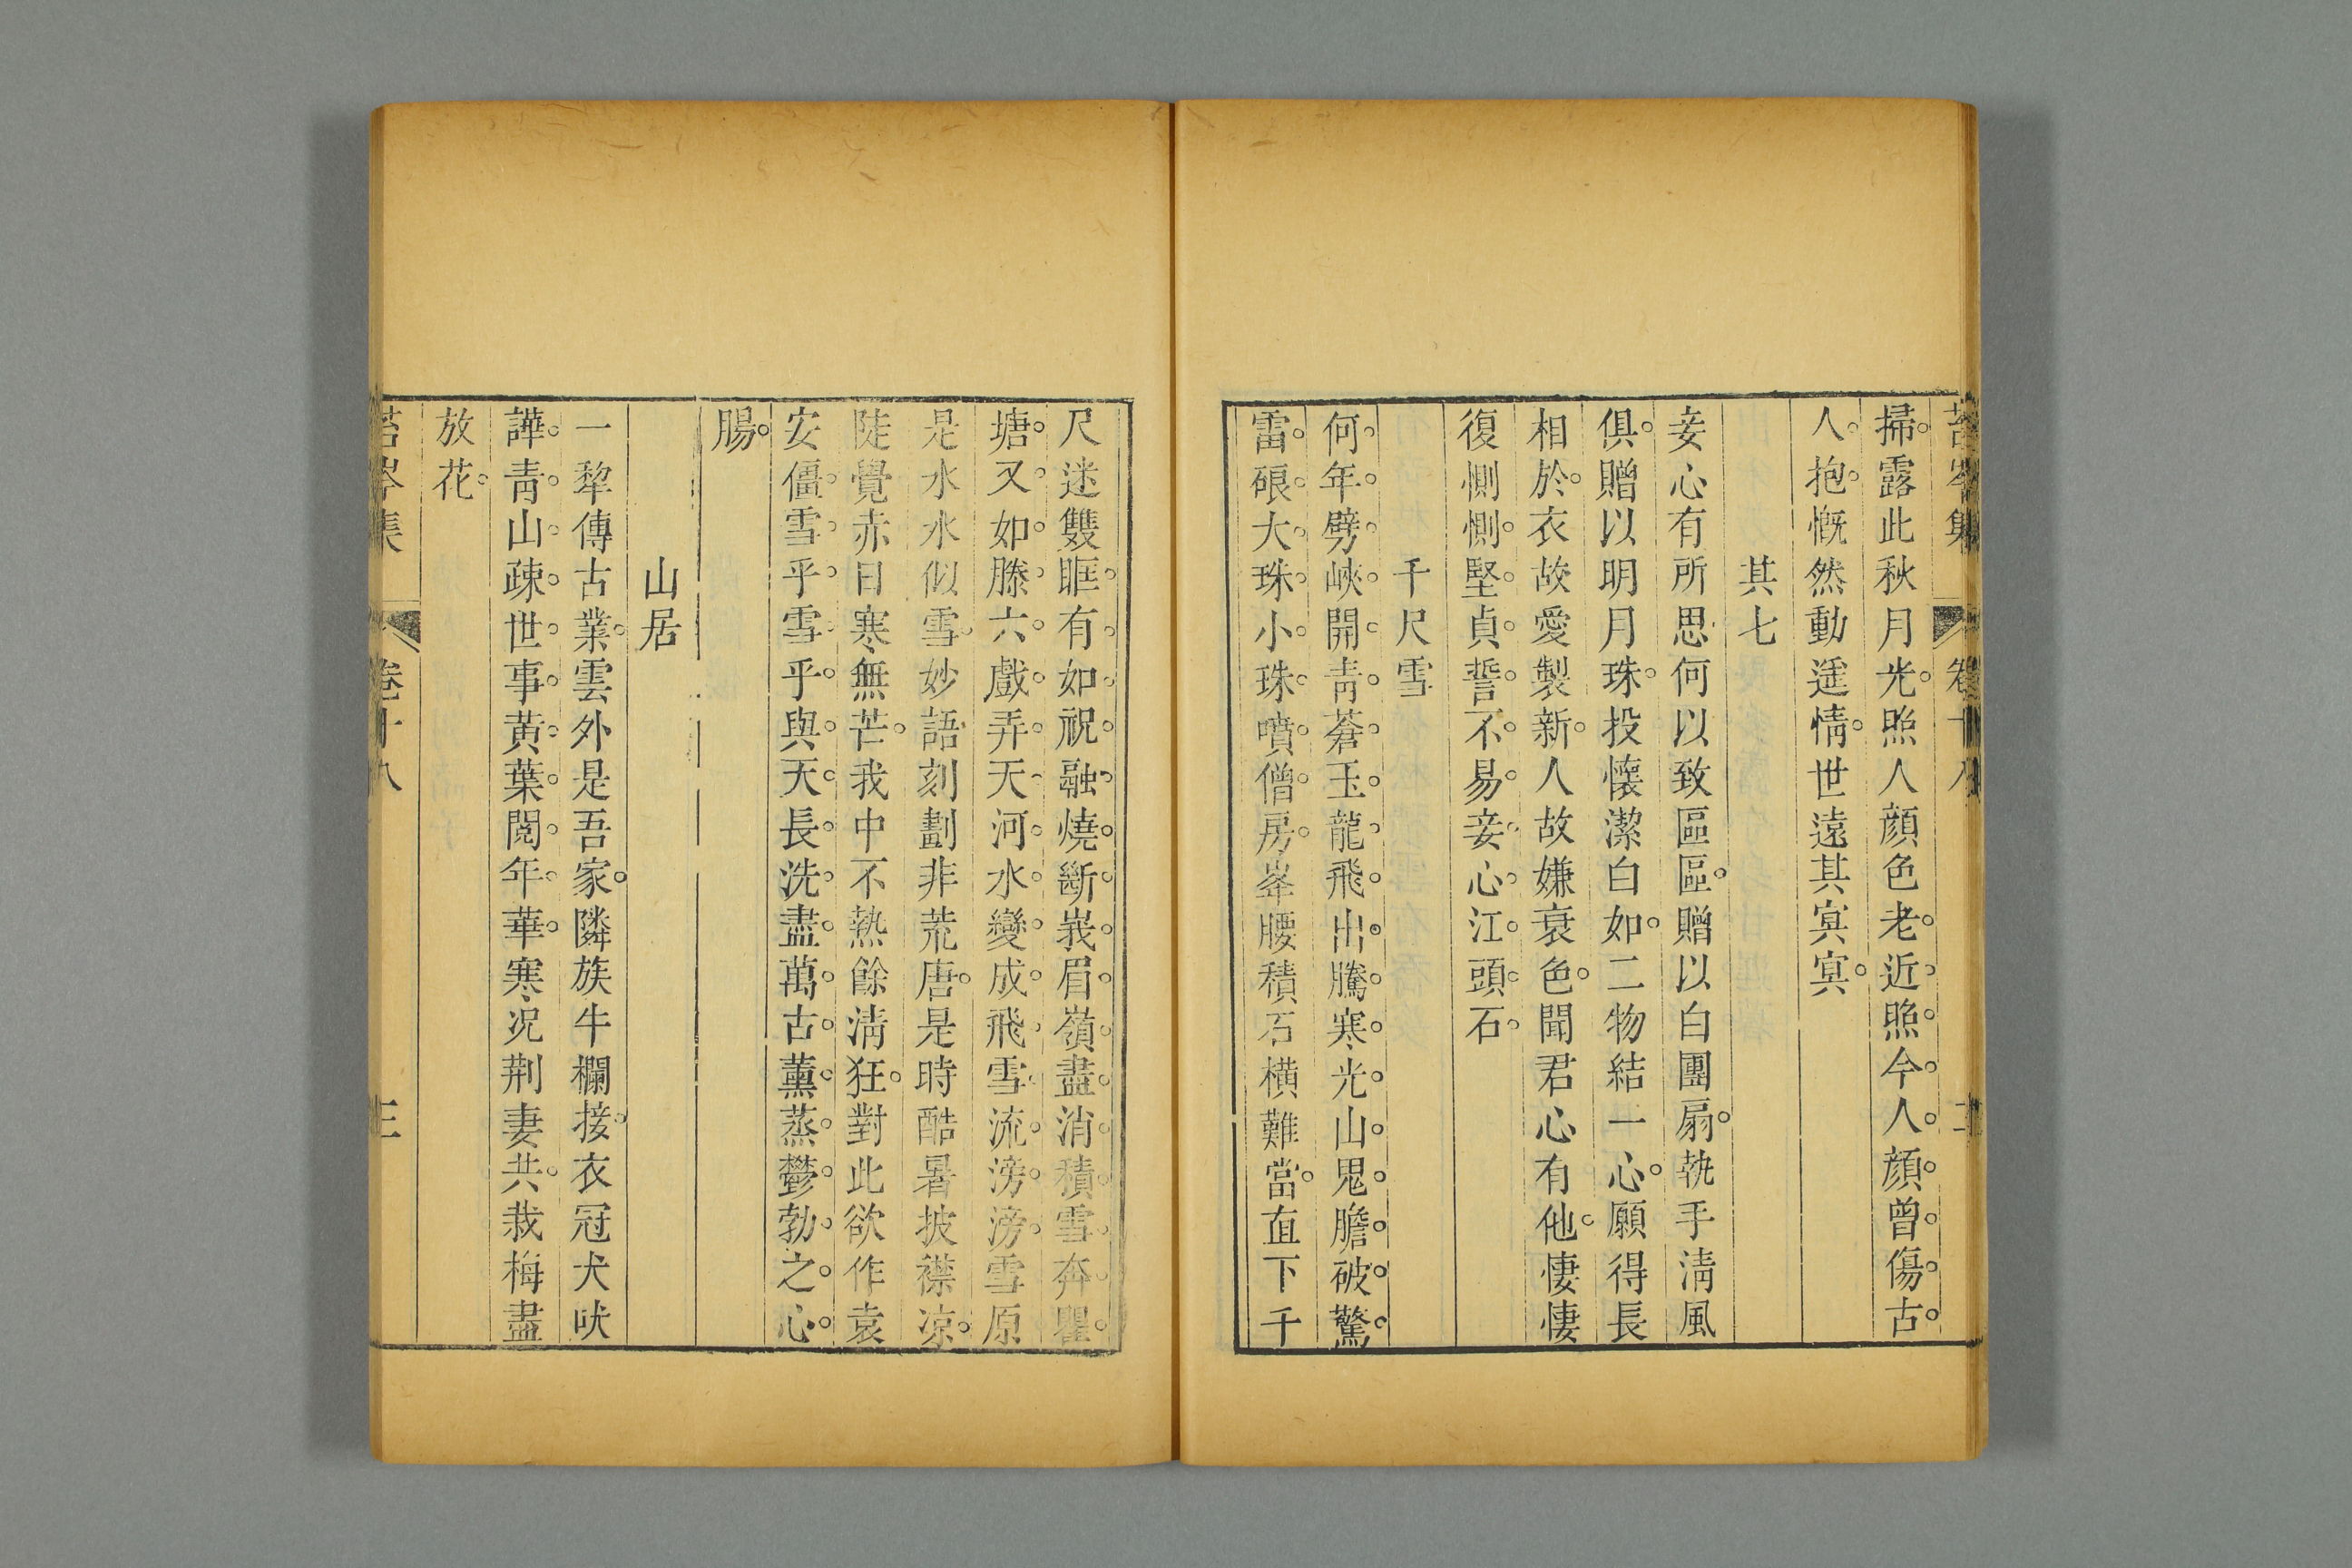 苔岑集 卷十八 二
掃露此秋月光照人顏色老近照今人顏曾傷古
人抱慨然動遥情世遠其㝠㝠
其七
妾心有所思何以致區區贈以白團扇執手淸風
俱贈以明月珠投懷潔白如二物結一心願得長
相於衣故愛製新人故嫌衰色聞君心有他悽悽
復惻惻堅貞誓不易妾心江頭石
千尺雪
何年劈峽開靑蒼玉龍飛出騰寒光山鬼膽破驚
雷硠大珠小珠噴僧房峯腰積石橫難當直下千
尺迷雙眶有如祝融燒斷峩眉嶺盡消積雪奔瞿
塘又如滕六戲弄天河水變成飛雪流滂滂雪原
是水水似雪妙語刻劃非荒唐是時酷暑披襟凉
陡覺赤日寒無芒我中不熱餘淸狂對此欲作袁
安僵雪乎雪乎與天長洗盡萬古薰蒸鬱勃之心
腸
山居
一犂傳古業雲外是吾家隣族牛欄接衣冠犬吠
譁靑山疎世事黃葉閱年華寒况荆妻共栽梅盡
放花
苔岑集 卷十八 三